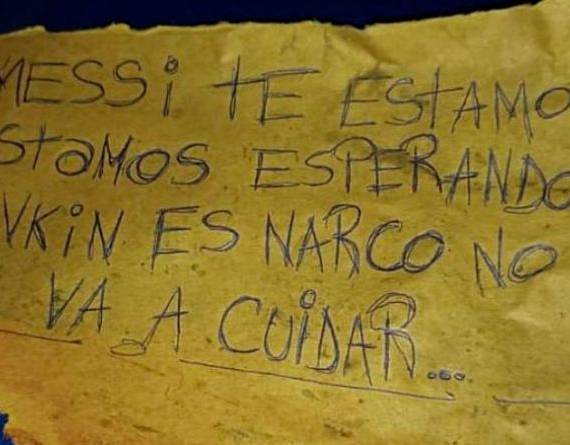 MESSi tE EStAMO
StaMOS ESPERANDO
VKiN ES NARCO NO
VA A CUiDAR...